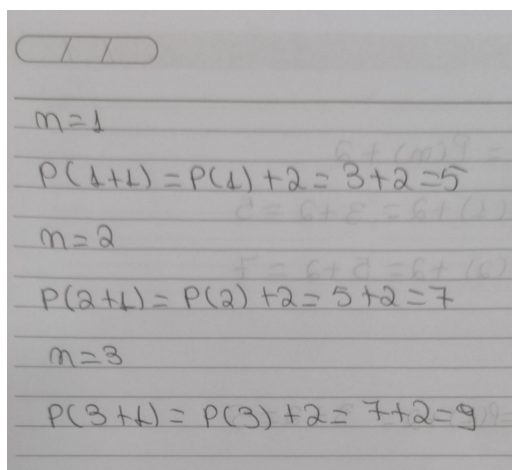 n=1
P(1+1) = P(1) +2 = 3+2 =5
n=2
P(2+1) = P(2) +2 = 5+2 =7
n=3
P(3+1) = P(3) +2 = 7+2=9